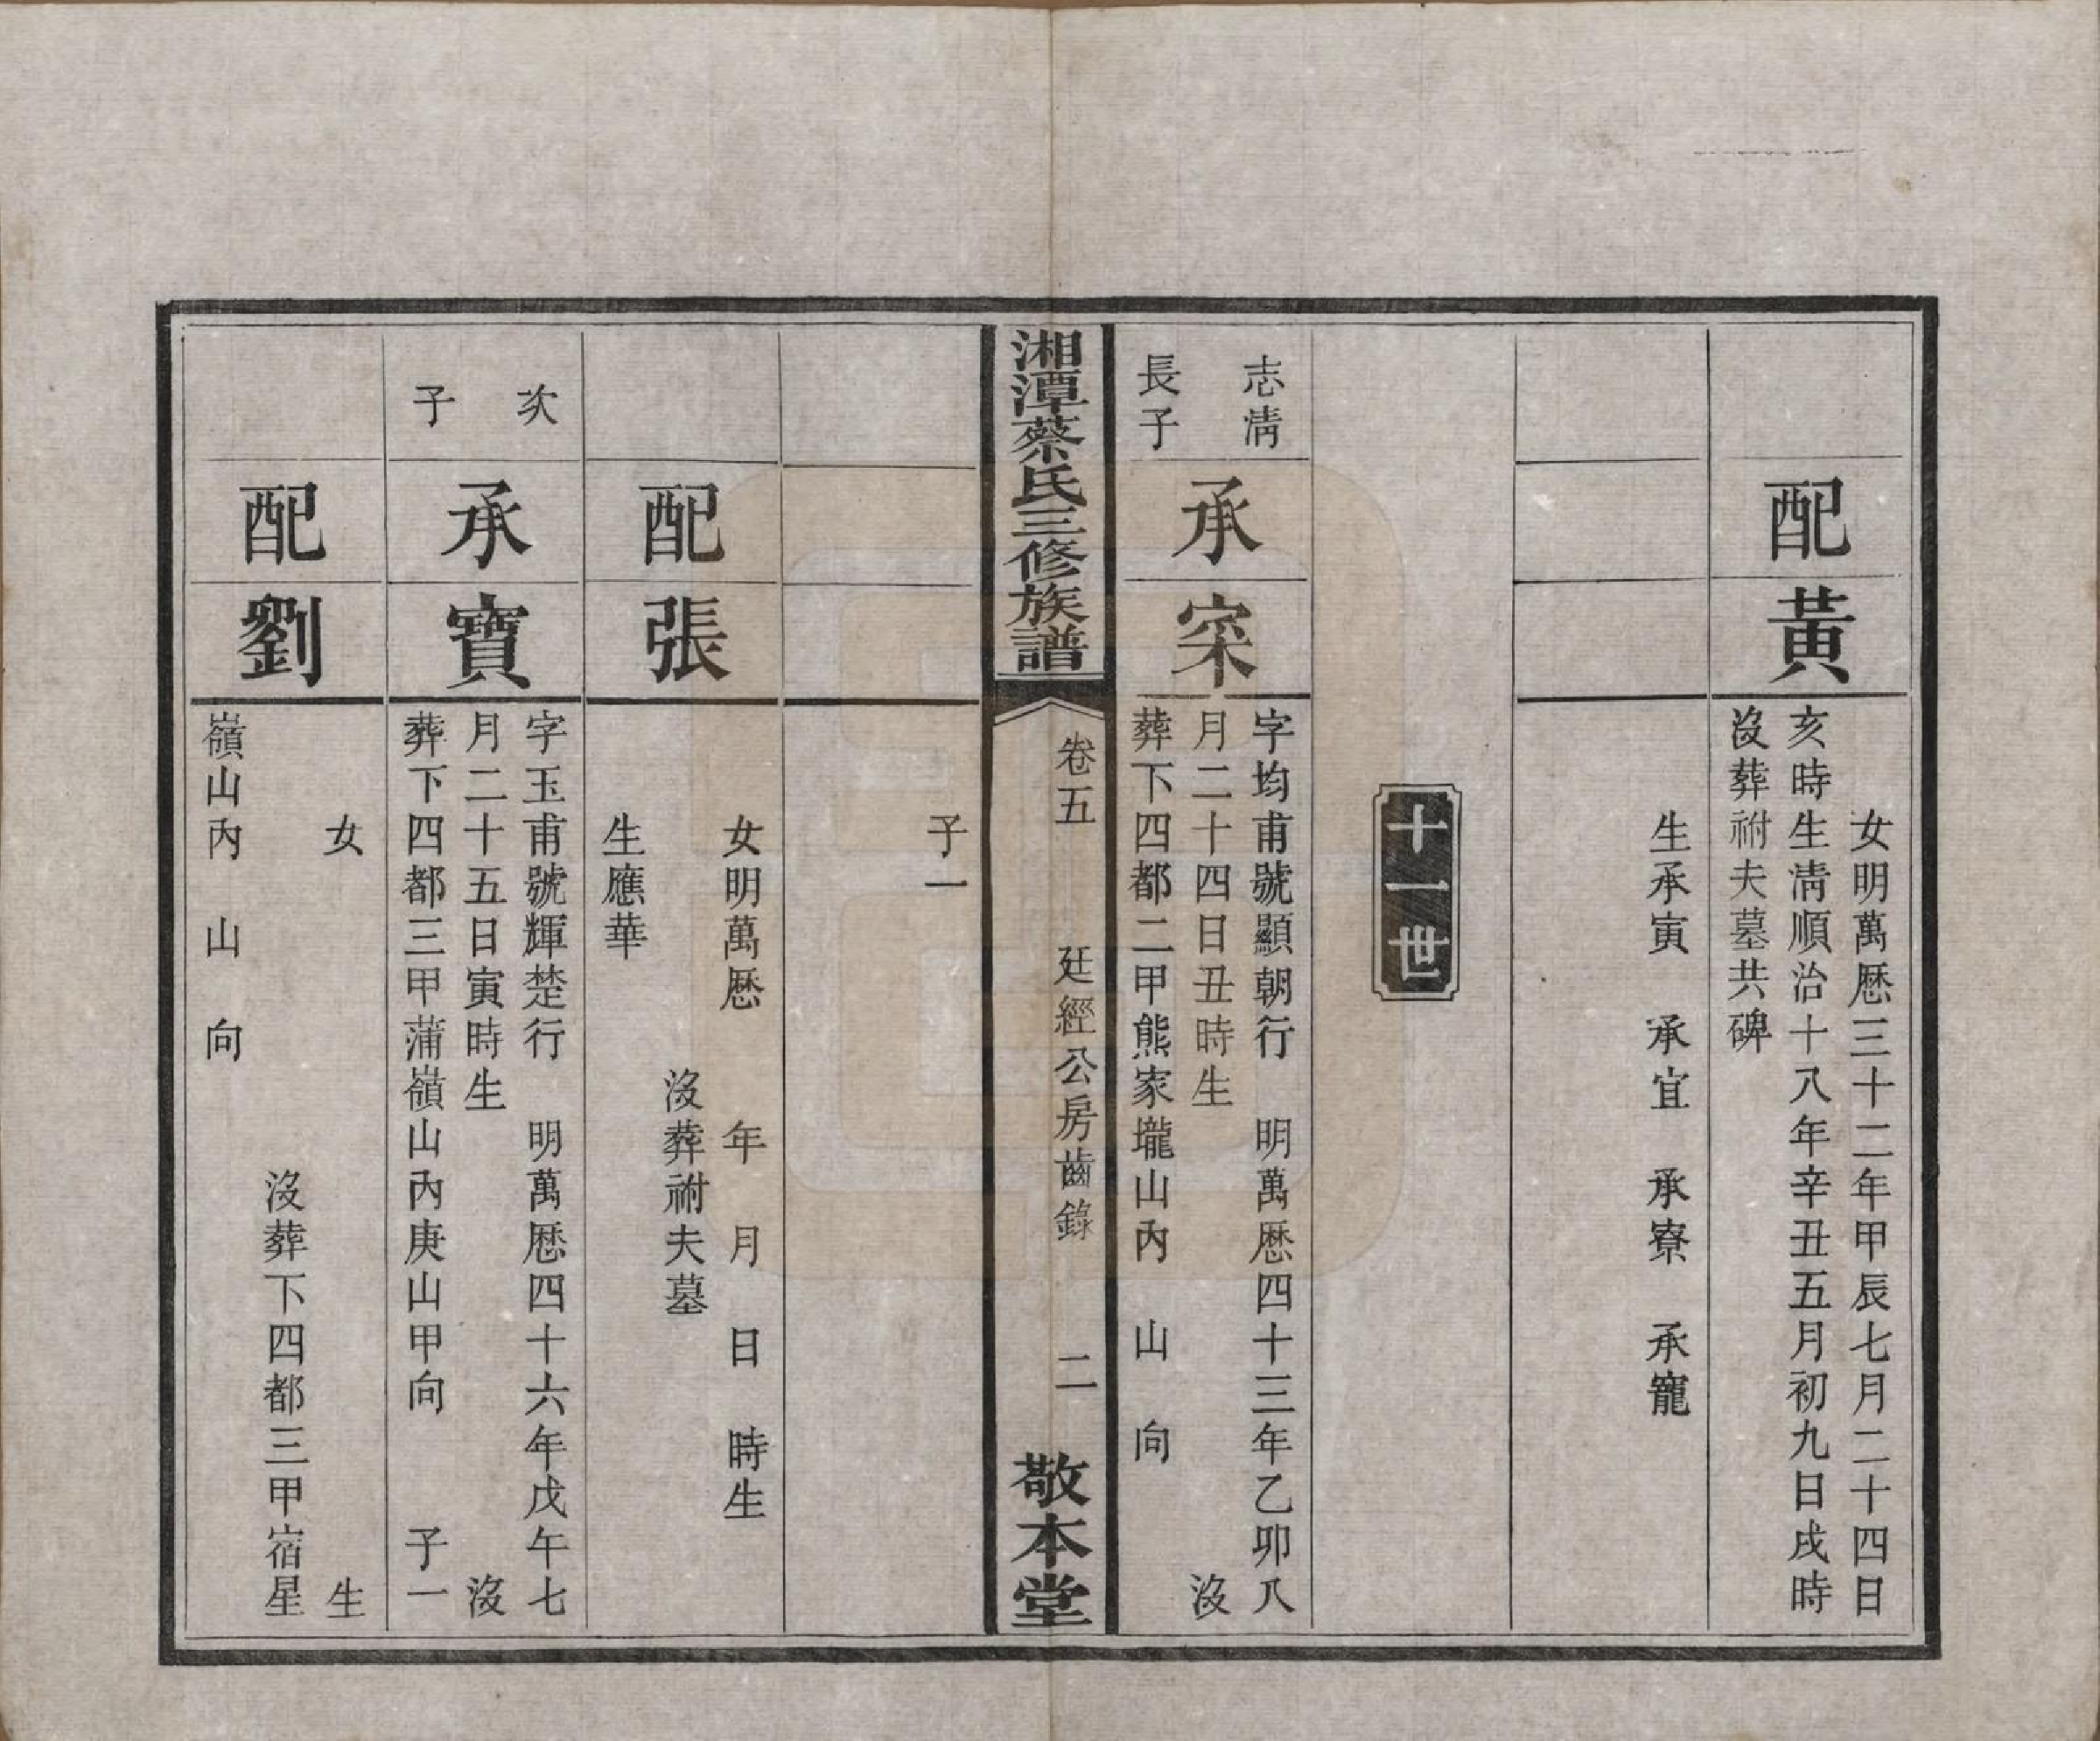 配黃
女明萬厯三十二年甲辰七月二十四日
亥時生淸順治十八年辛丑五月初九日戌時
沒葬祔夫墓共碑
生承寅 承宜 承寮 承寵
十一世
志淸
長子
承寀
字均甫號顯朝行 明萬厯四十三年乙卯八
月二十四日丑時生 沒
葬下四都二甲熊家壠山內 山 向
湘潭蔡氏三修族譜
卷五 廷經公房齒錄 二
敬本堂
子一
配張
女明萬厯 年 月 日 時生
沒葬祔夫墓
生應華
次
子
承寶
字玉甫號輝楚行 明萬厯四十六年戊午七
月二十五日寅時生 沒
葬下四都三甲蒲嶺山內庚山甲向 子一
配劉
女 生
沒葬下四都三甲宿星
嶺山內 山 向